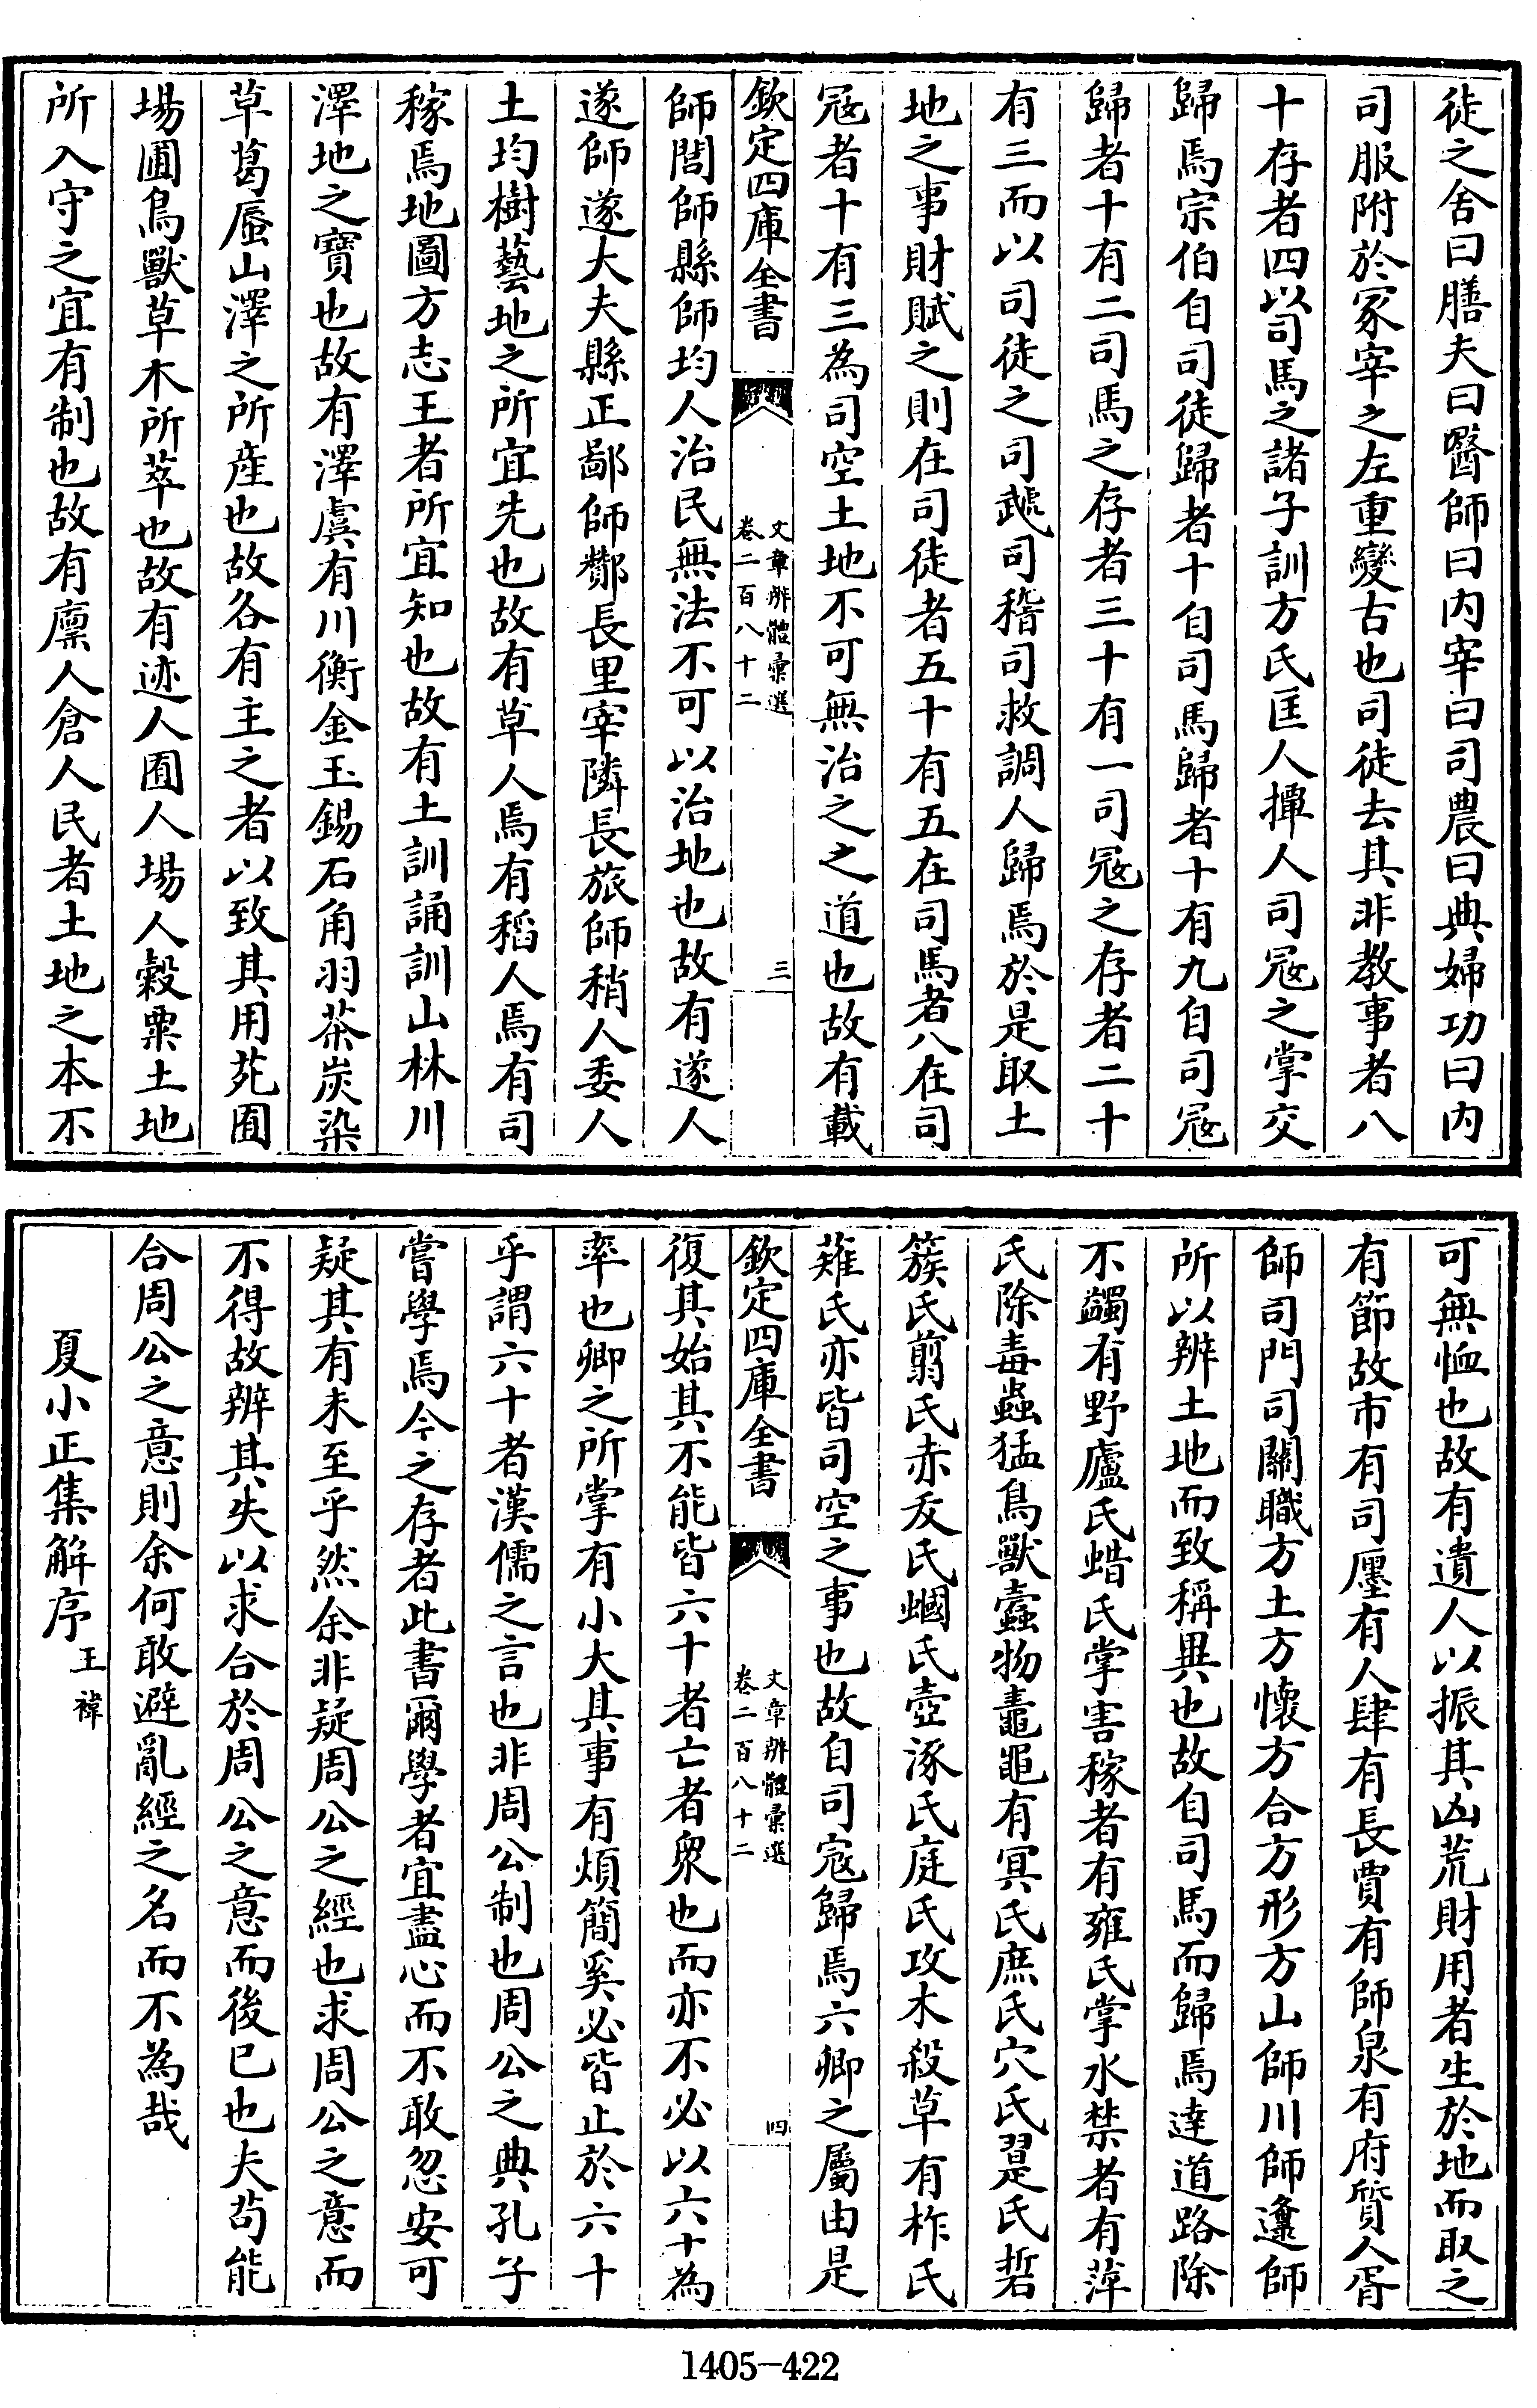 徒之舍曰膳夫曰醫師曰内宰曰司農曰典婦功曰内
司服附於冢宰之左重變古也司徒去其非教事者八
十存者四以司馬之諸子訓方氏匡人撢人司冦之掌交
歸焉宗伯自司徒歸者十自司馬歸者十有九自司冦
歸者十有二司馬之存者三十有一司冦之存者二十
有三而以司徒之司虣司稽司救調人歸焉於是取土
地之事財賦之則在司徒者五十有五在司馬者八在司
冦者十有三為司空土地不可無治之之道也故有載
欽定四庫全書
文章辨體彙選
卷二百八十二
三
師閭師縣師均人治民無法不可以治地也故有遂人
遂師遂大夫縣正鄙師酇長里宰隣長旅師稍人委人
土均樹藝地之所宜先也故有草人焉有稻人焉有司
稼焉地圖方志王者所宜知也故有土訓誦訓山林川
澤地之寳也故有澤虞有川衡金玉錫石角羽荼炭染
草葛蜃山澤之所産也故各有主之者以致其用苑囿
場圃鳥獸草木所萃也故有迹人囿人場人穀粟土地
所入守之宜有制也故有廩人倉人民者土地之本不
可無恤也故有遺人以振其凶荒財用者生於地而取之
有節故市有司廛有人肆有長賈有師泉有府質人胥
師司門司關職方土方懷方合方形方山師川師邍師
所以辨土地而致稱異也故自司馬而歸焉達道路除
不蠲有野廬氏蜡氏掌害稼者有雍氏掌水禁者有萍
氏除毒蟲猛鳥獸蠧物鼃黽有冥氏庶氏穴氏翨氏硩
蔟氏翦氏赤犮氏蟈氏壺涿氏庭氏攻木殺草有柞氏
薙氏亦皆司空之事也故自司寇歸焉六卿之屬由是
欽定四庫全書
文章辨體彙選
卷二百八十二
四
復其始其不能皆六十者亡者衆也而亦不必以六十為
率也卿之所掌有小大其事有煩簡奚必皆止於六十
乎謂六十者漢儒之言也非周公制也周公之典孔子
嘗學焉今之存者此書爾學者宜盡心而不敢忽安可
疑其有未至乎然余非疑周公之經也求周公之意而
不得故辨其失以求合於周公之意而後已也夫苟能
合周公之意則余何敢避亂經之名而不為哉
夏小正集解序
王禕
1405-422